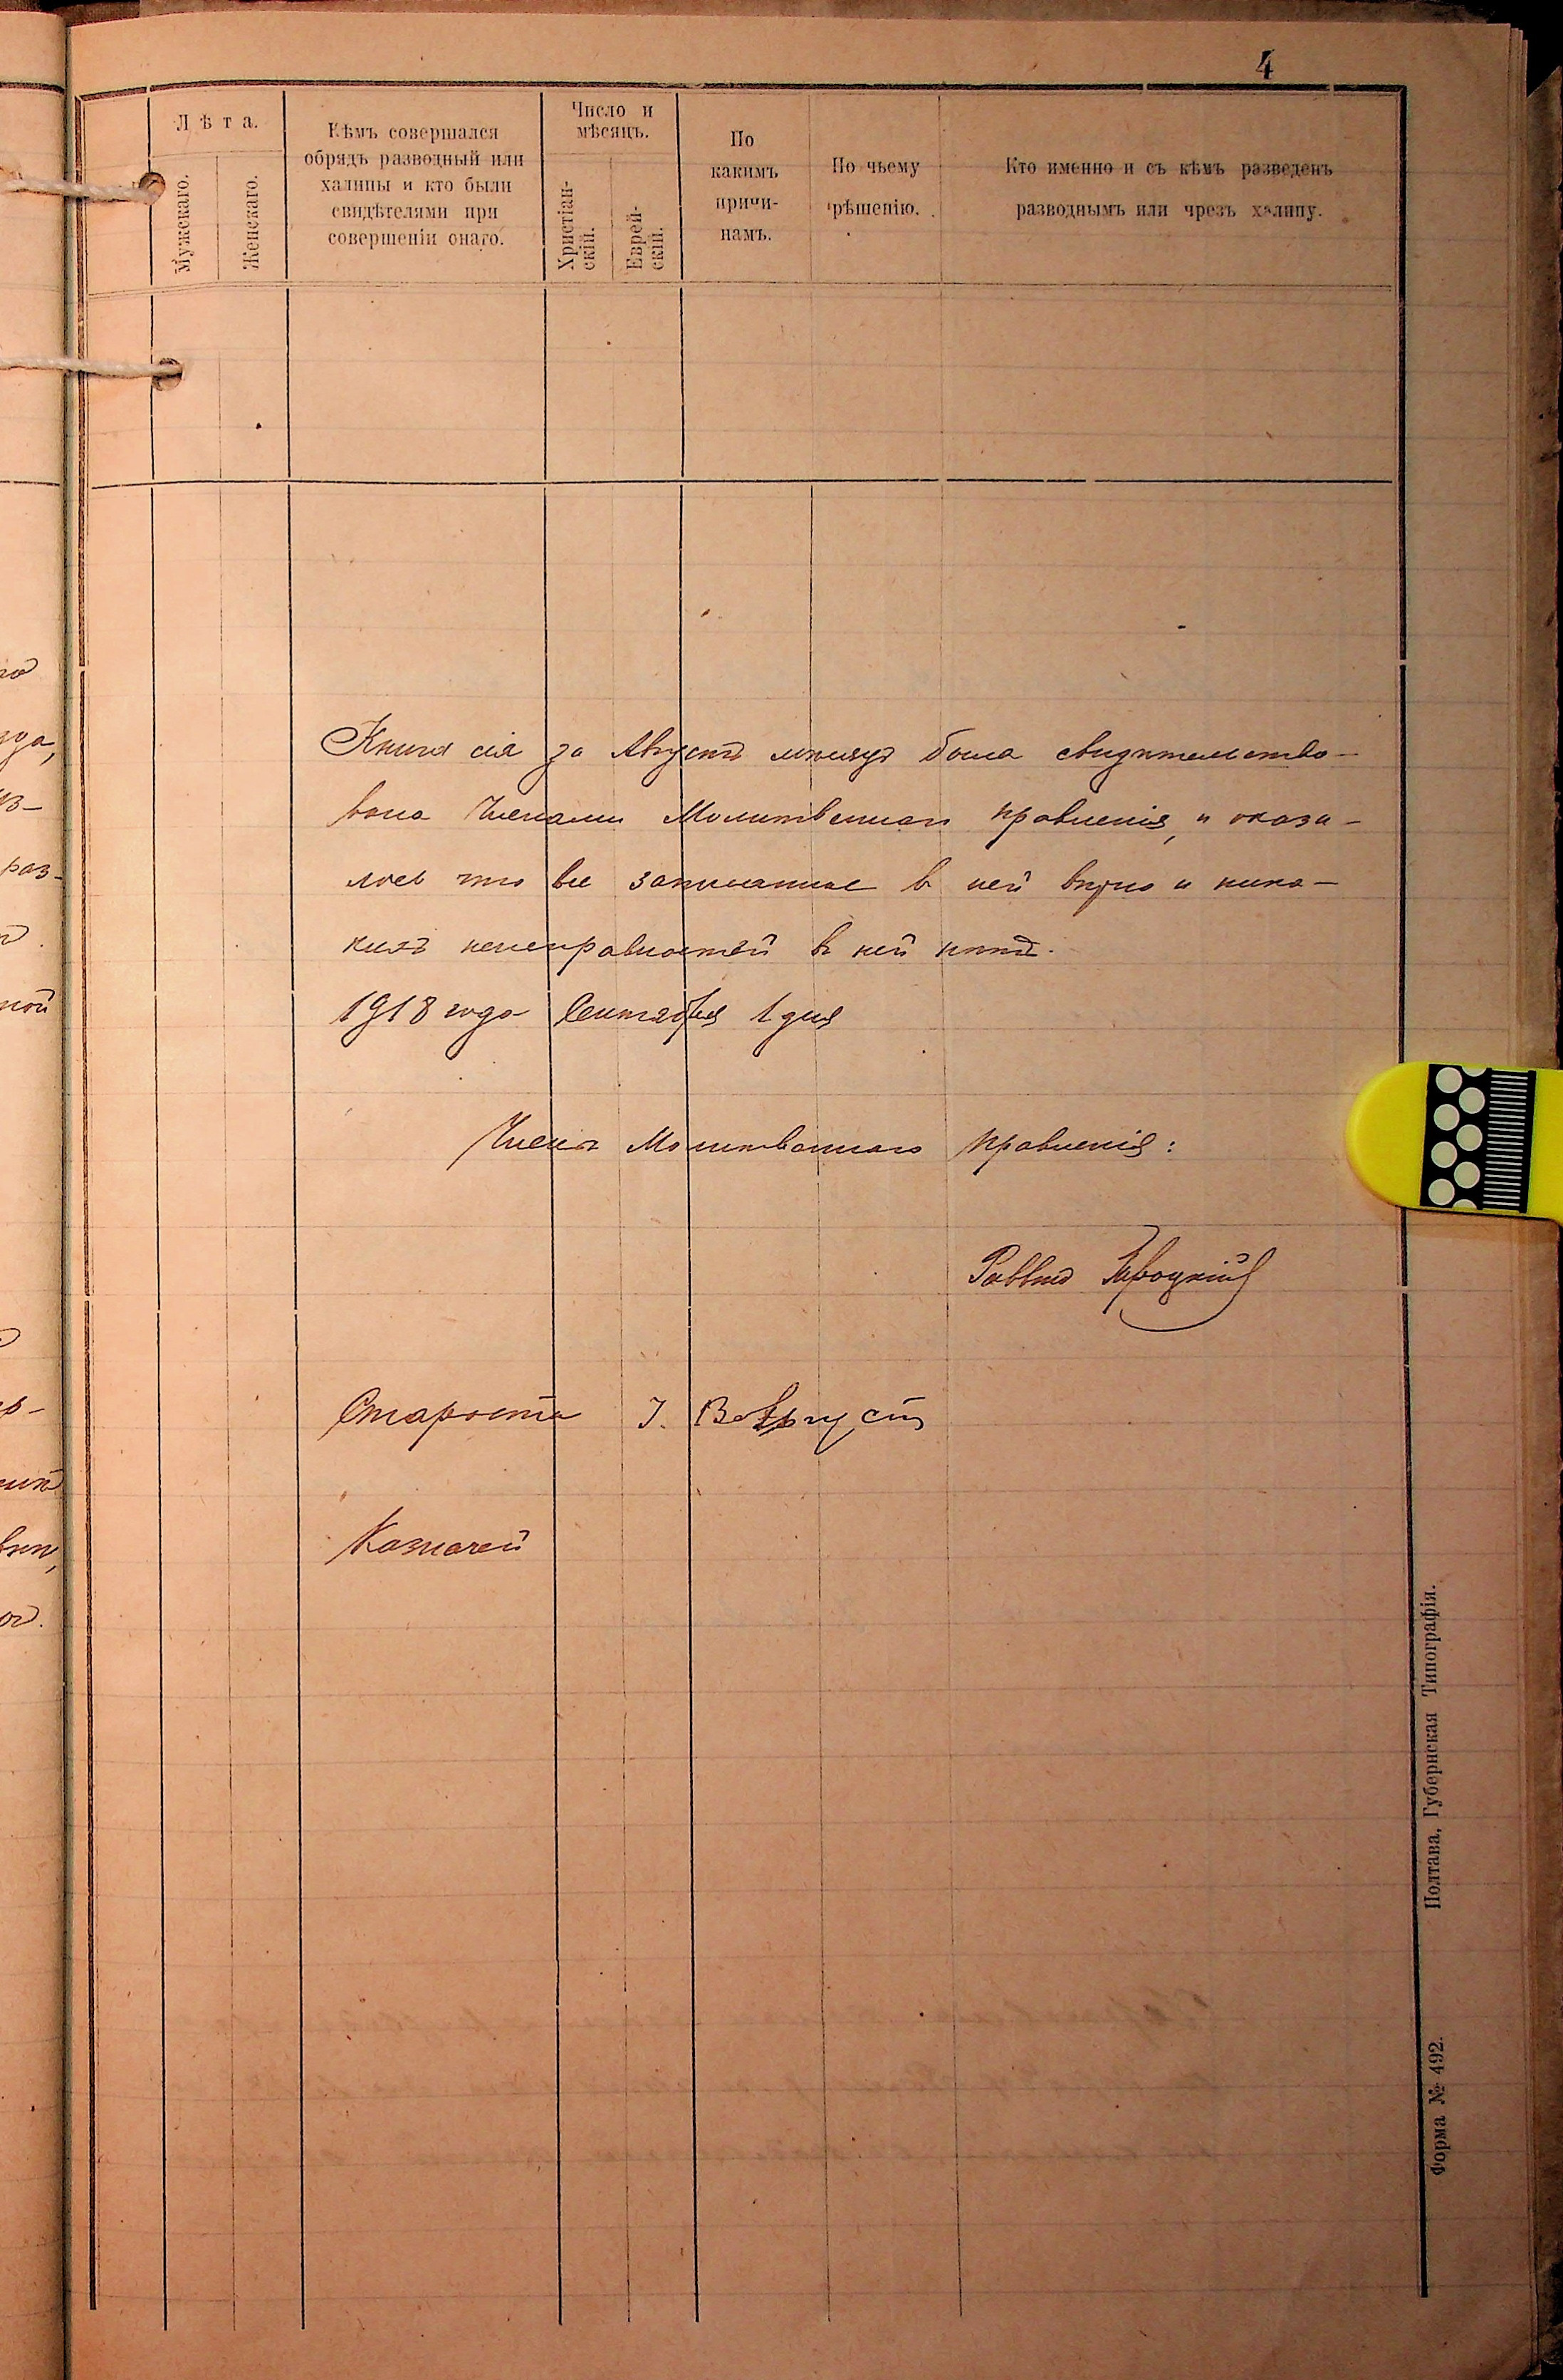 4
Лѣта.
Мужскаго.
Женскаго.
Кѣмъ совершался
обрядъ разводный или
халицы и кто были
свидѣтелями при
совершеніи онаго.
Число и
мѣсяцъ.
Христіан-
скій.
Еврей-
скій.
По
какимъ
причи-
намъ.
По чьему
рѣшенію.
Кто именно и съ кѣмъ разведенъ
разводнымъ или чрезъ халицу.
Книга сія за Августъ мѣсяцъ была свидѣтельство-
вана Членами Молитвеннаго правленія, и оказа-
лось что все записанное в ней вѣрно и ника-
кихъ неисправностей в ней нѣтъ.
1918 года Сентября 1 дня
Члены Молитвеннаго правленія:
Раввинъ
Староста І.
Казначей
Полтава, Губернская Типографія.
Форма № 492.
раз-
ной